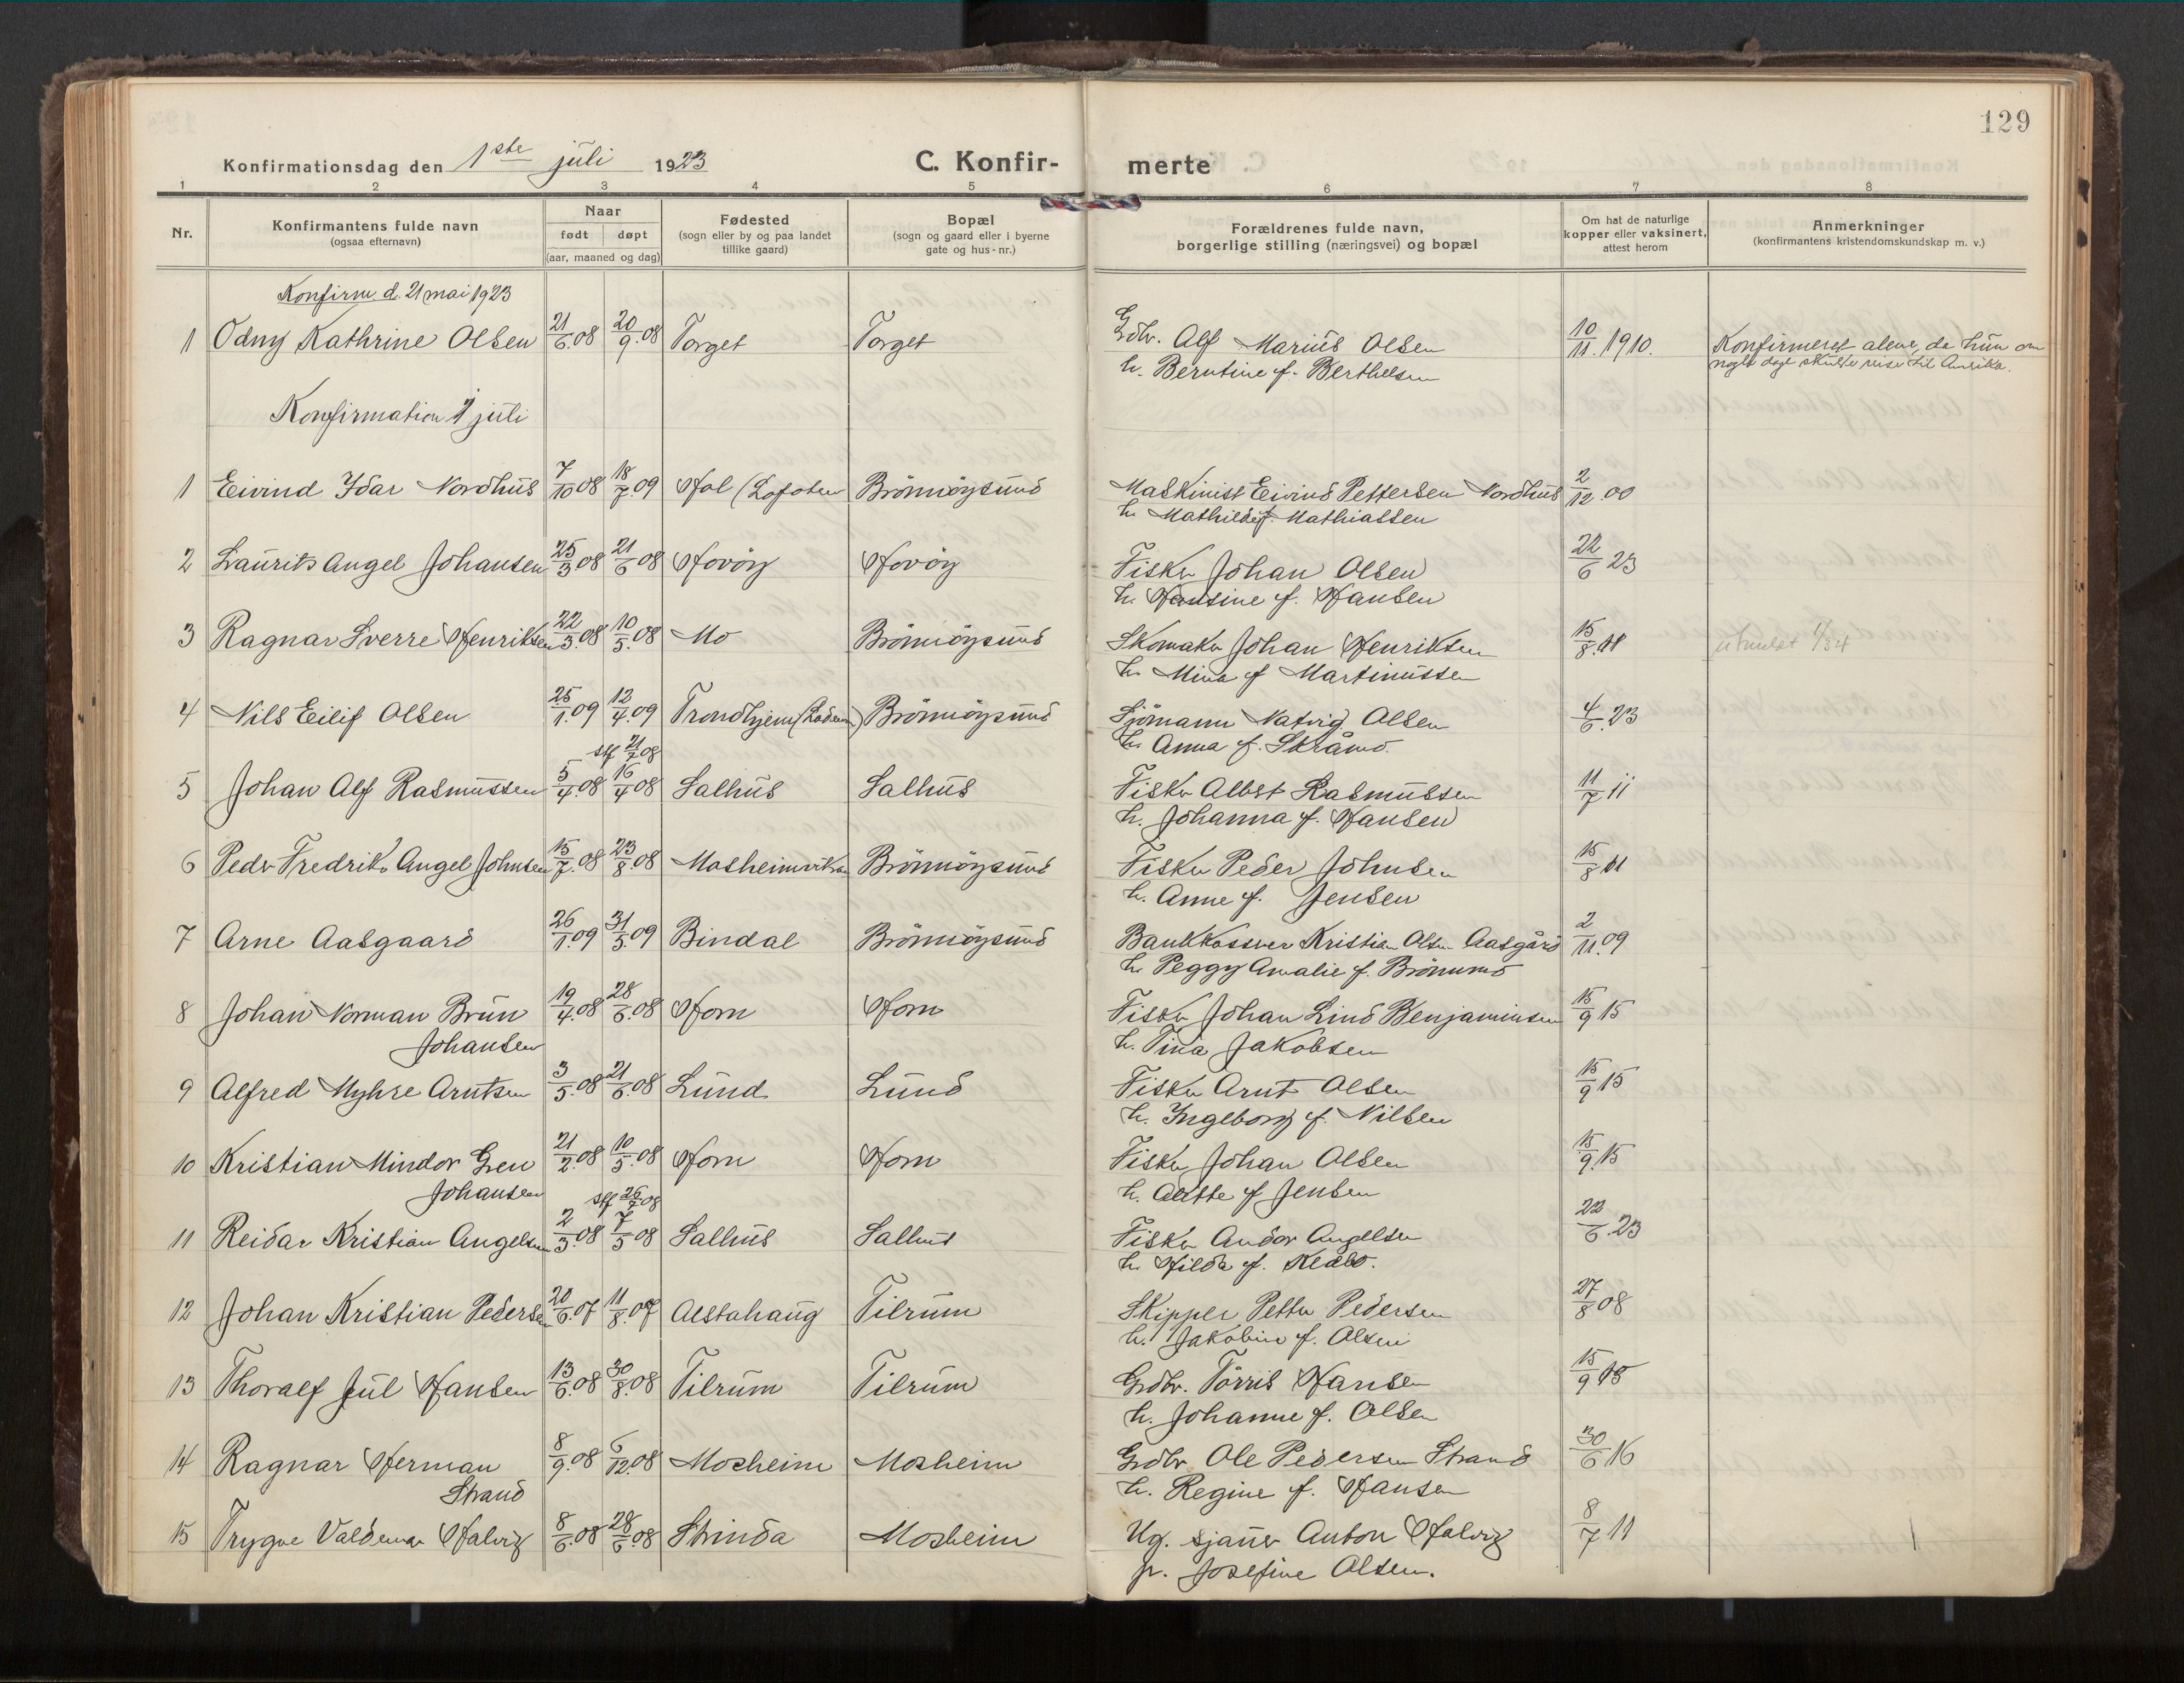 129
Konfirmationsdag den 1ste juli 1923 C. Konfir- merte
1 2 3 4 5 6 7 8
Nr. Konfirmantens fulde navn (ogsaa efternavn) Naar født døpt (aar, maaned og dag) Fødested (sogn eller by og paa landet tillike gaard) Bopæl (sogn og gaard eller i byerne gate og hus-nr.) Forældrenes fulde navn, borgerlige stilling (næringsvei) og bopæl Om hat de naturlige kopper eller vaksinert, attest herom Anmerkninger (konfirmantens kristendomskundskap m. v.)
Konfirm. d. 21 mai 1923
1 Odny Kathrine Olsen 21/6.08 20/9.08 Torget Torget Gdbr. Alf Marius Olsen 10/11.1910. Konfirmeret alene, da hun om
h. Berntine f. Berthelsen nogle dage skulde reise til Amerika.
Konfirmation 1 juli
1 Eivind Idar Nordhus 7/10 08 18/7.09 Hol (Lofoten Brönnöysund Maskinist Eivind Pettersen Nordhus 2/12.00
h. Mathilde f. Mathiassen
2 Laurits Angel Johansen 25/3 08 21/6 08 Havöy Havöy Fisker Johan Olsen 22/6 23
h. Hansine f. Hansen
3 Ragnar Sverre Henriksen 22/3.08 10/5.08 Mo Brönnöysund Skomaker Johan Henriksen 15/8.11 utmeldt 1/34
h. Mina f Martinussen
4 Nils Eilif Olsen 25/1.09 12/4.09 Trondhjem (Lademo) Brönnöysund Sjömann Natvig Olsen 4/6.23
h. Anna f. Skråmo.
stf 21/7 08
5 Johan Alf Rasmussen 5/4.08 16/4 08 Salhus Salhus Fisker Albert Rasmussen 11/7 11
h. Johanna f. Hansen
6 Peder Fredrik Angel Johnsen 15/7.08 23/8.08 Mosheimvika Brönnöysund Fisker Peder Johnsen 15/8 11
h. Anne f. Jensen
7 Arne Aasgaard 26/1.09 31/5 09 Bindal Brönnöysund Bankkasserer Kristian Olsen Aasgård 2/11.09
h. Peggy Amalie f. Brönmo
8 Johan Norman Brun 19/4.08 28/6.08 Horn Horn Fisker Johan Lind Benjaminsen 15/9 15
Johansen h. Tina Jakobsen
9 Alfred Myhre Arntsen 3/5.08 21/6.08 Lund Lund Fisker Arnt Olsen 15/9 15
h. Ingeborg f. Nilsen
10 Kristian Mindor Gren 21/2.08 10/5.08 Horn Horn Fisker Johan Olsen 15/9.15
Johansen h. Alette f Jensen
stf 26/7 08
11 Reidar Kristian Angelsen 2/3.08 7/5 08 Salhus Salhus Fisker Andor Angelsen 22/6.23
h. Hilda f. Klæbo.
12 Johan Kristian Pedersen 20/6.07 11/8.07 Alstahaug Tilrum Skipper Petter Pedersen 27/8 08
h. Jakobine f. Olsen
13 Thoralf Jul Hansen 13/6.08 30/8.08 Tilrum Tilrum Grdbr. Törris Hansen 15/9 15
h. Johanne f. Olsen
14 Ragnar Herman 8/9.08 6/12.08 Mosheim Mosheim Grdbr. Ole Pedersen Strand 30/6 16
Strand h. Regine f. Hansen
15 Trygve Valdemar Halvig 8/6.08 28/6.08 Strinda Mosheim Ug. sjauer Anton Halvig 8/7 11
p. Josefine Olsen.